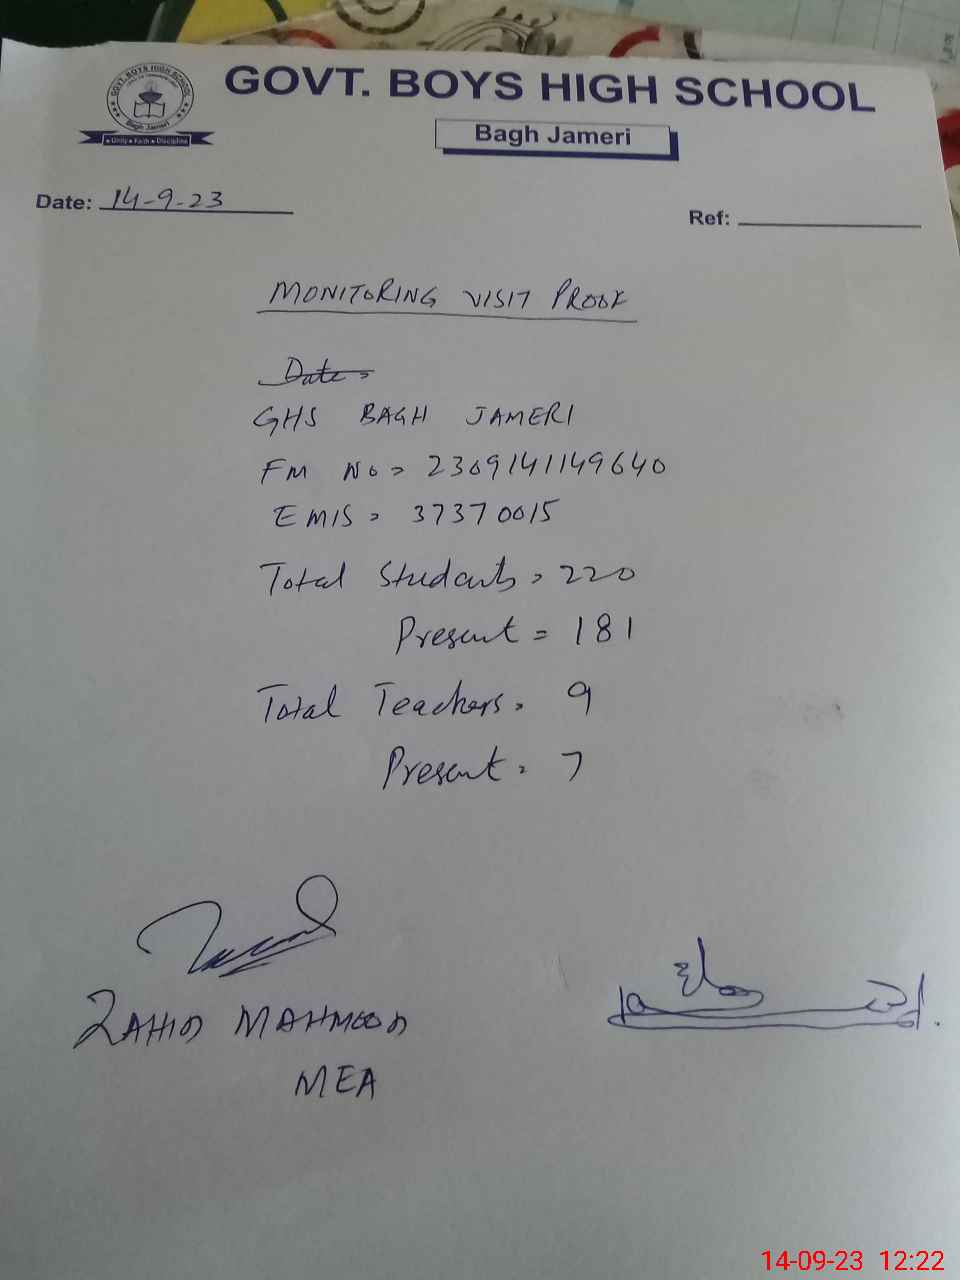 GOVT. BOYS HIGH SCHOOL
Bagh Jameri
GOVT. BOYS HIGH SCHOOL
Bagh Jameri
Unity Faith Discipline
Date: 14-9-23
Ref:
MONITORING VISIT PROOF
Date =
GHS BAGH JAMERI
FM No = 2309141149640
EMIS = 37370015
Total Students = 220
Present = 181
Total Teachers = 9
Present = 7
ZAHID MAHMOOD
MEA
14-09-23 12:22